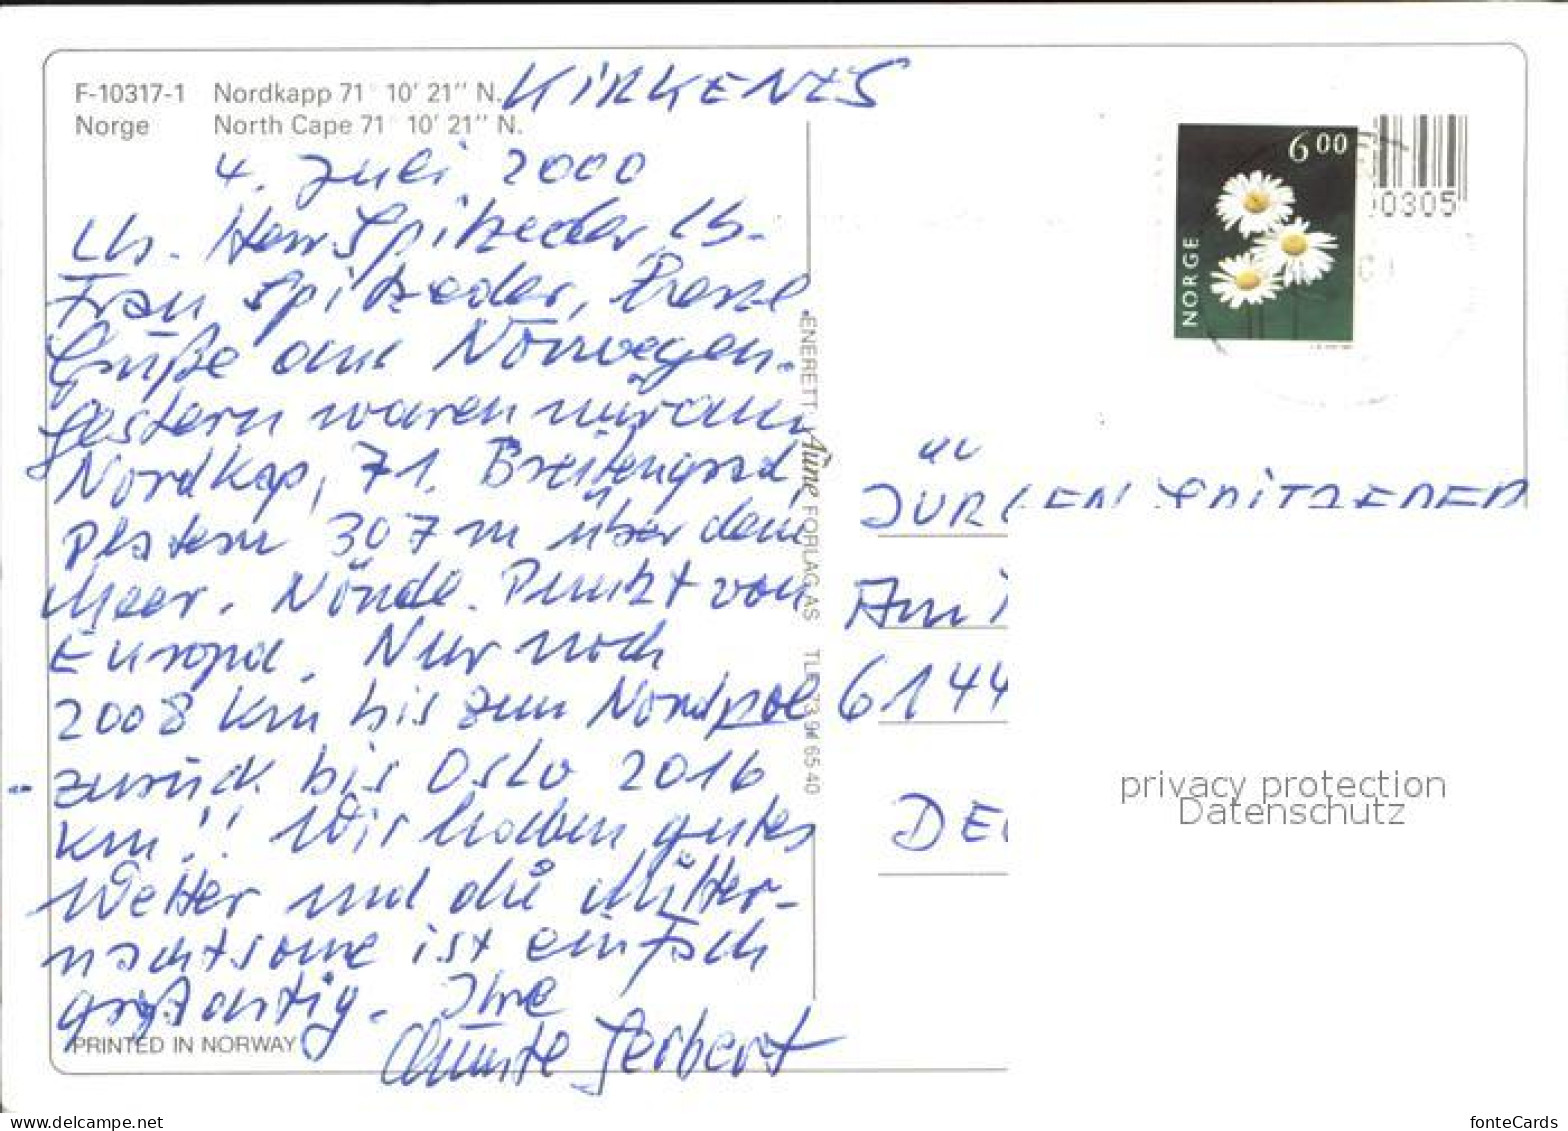 F-10317-1 Nordkapp 71° 10' 21'' N.
Norge North Cape 71° 10' 21'' N.
KIRKENES
4. Juli 2000
Lb. Herr Spitzeder, Lb.
Frau Spitzeder,
Grüße aus Norwegen.
Gestern waren wir am
Nordkap, 71. Breitengrad,
307 m über dem
Meer. Nördl. Punkt von
Europa. Nur noch
2008 km bis zum Nordpol
zurück bis Oslo 2016
km!! Wir haben gutes
Wetter und die Mitter-
nachtsonne ist einfach
großartig. Ihre
Herbert
PRINTED IN NORWAY
ENERETT: Aune FORLAG AS TLF. 73 94 65 40
6 00
NORGE
00305
JÜRGEN SPITZEDER
Am
6144
DE
privacy protection
Datenschutz
delcampe.net
fonteCards